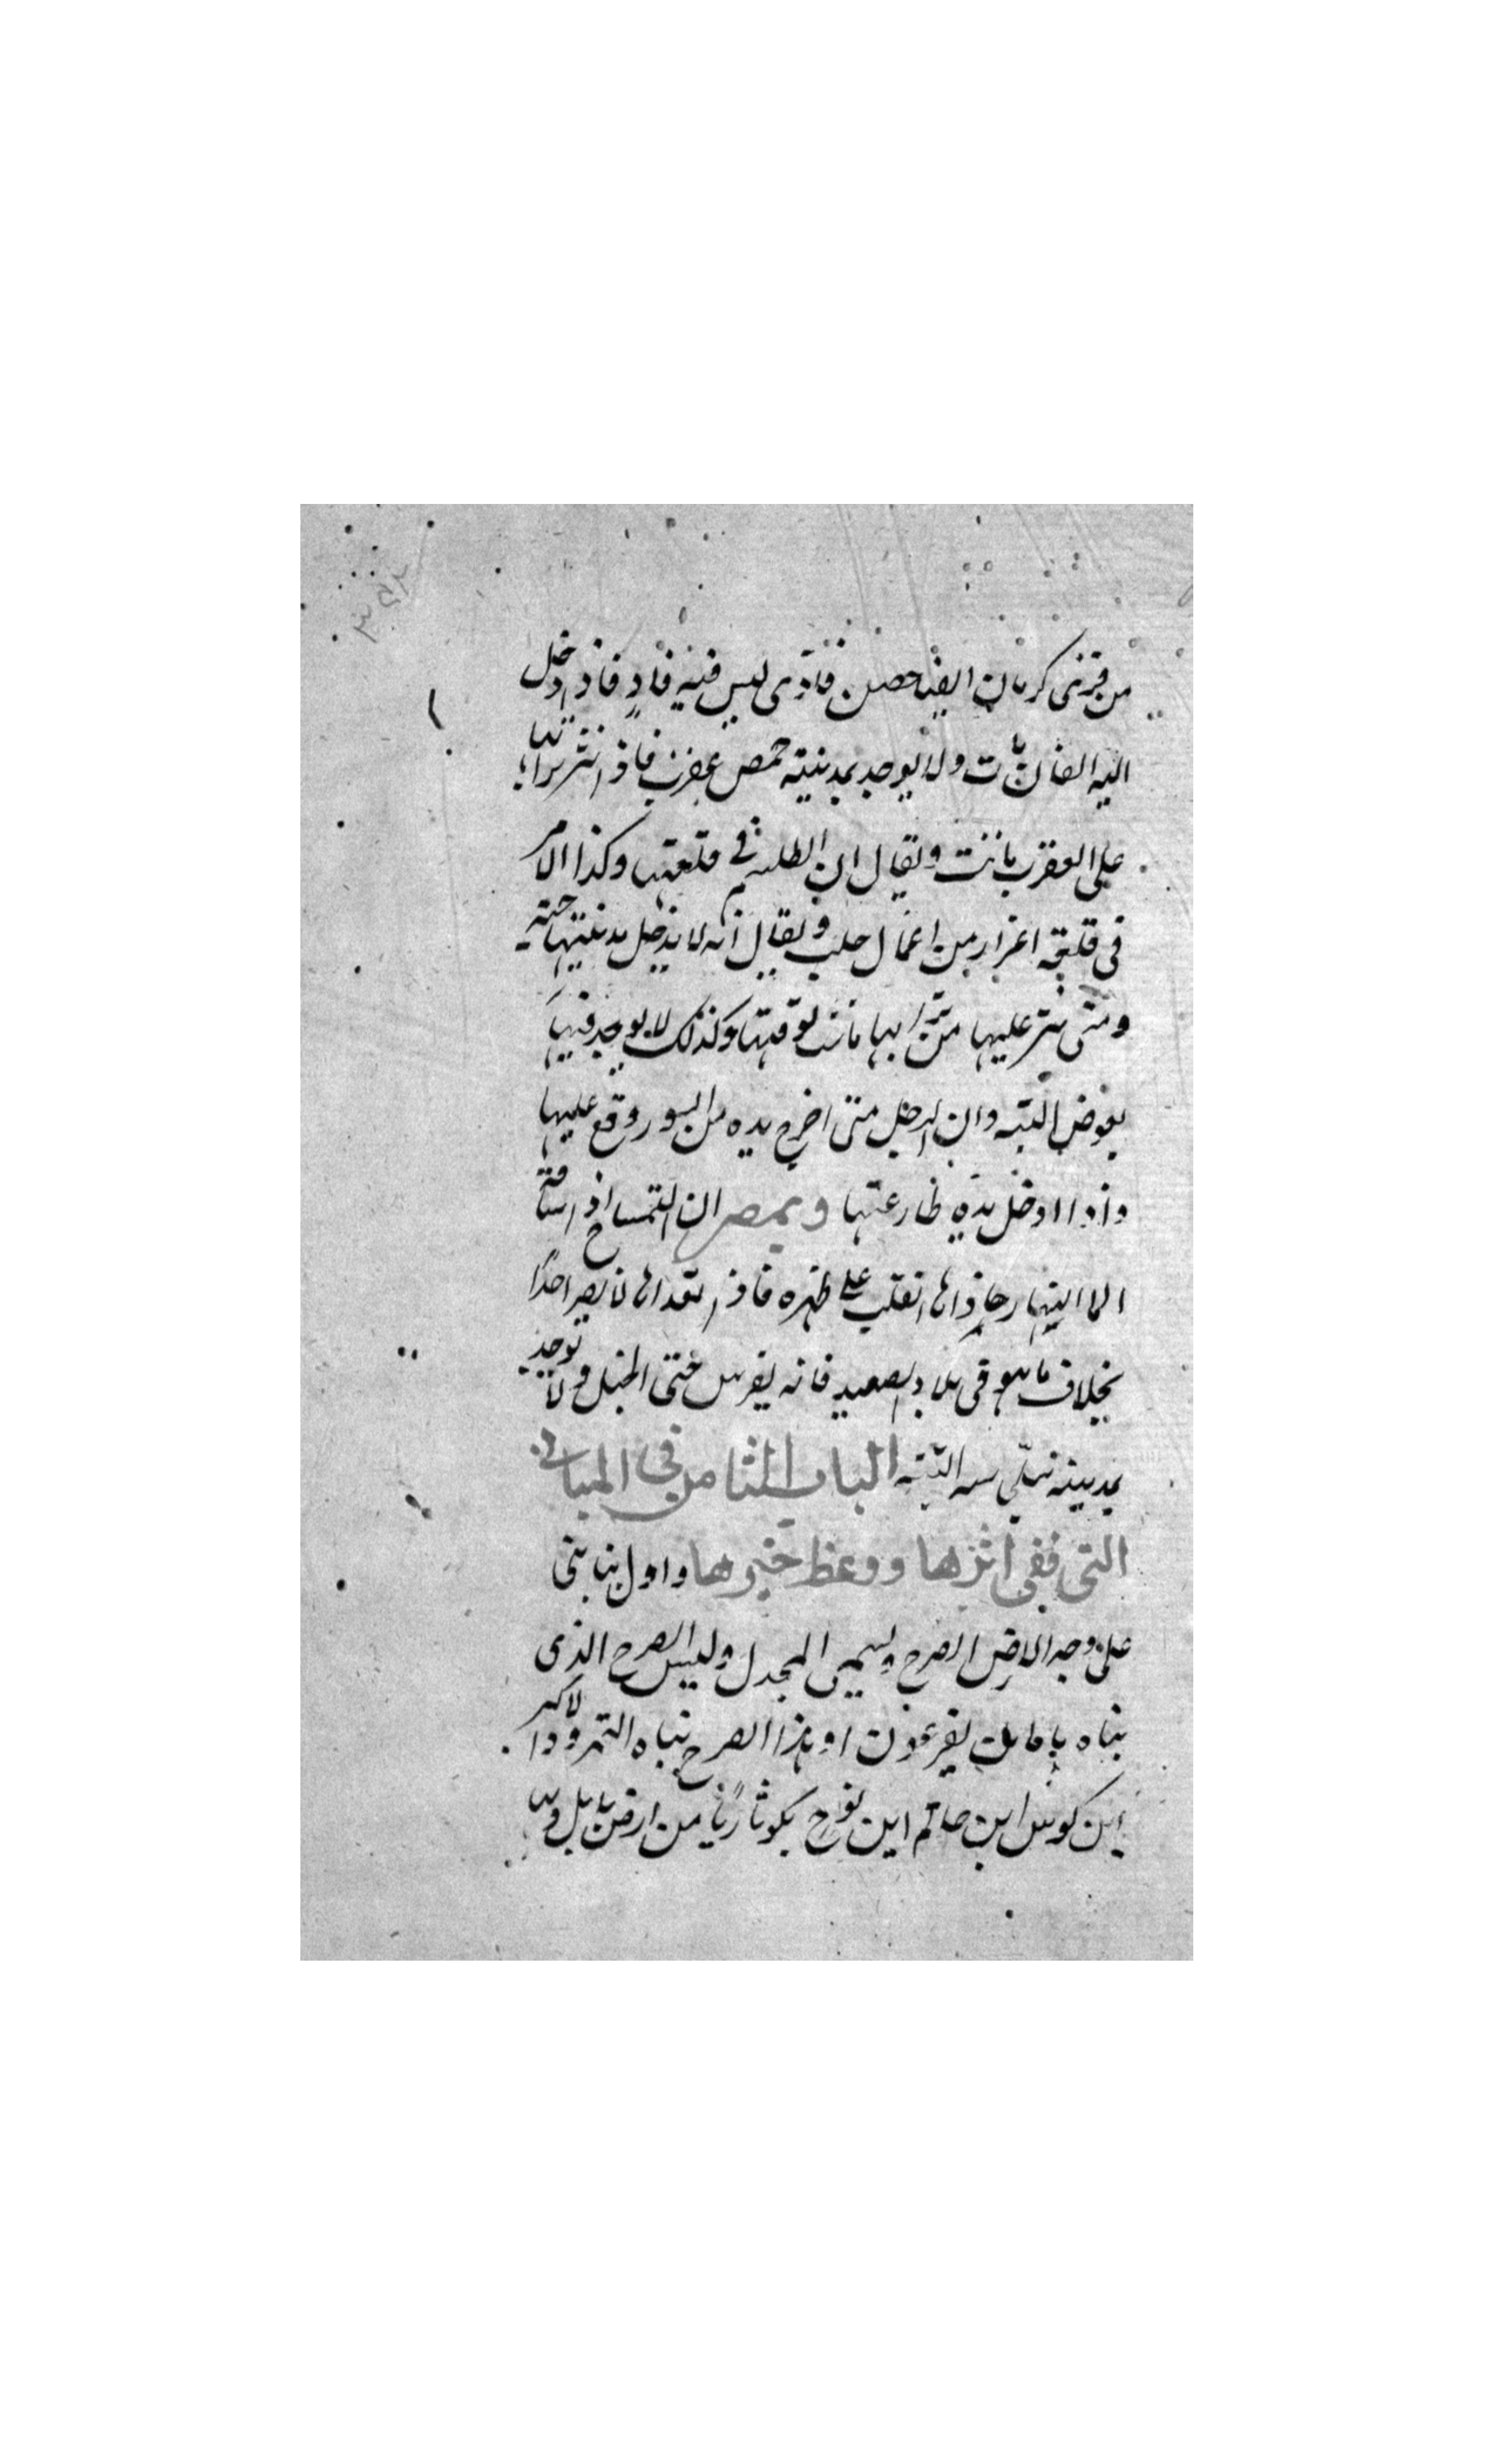 من قرى كرمان ايضا حصن فادى ليس فيه فار فاذا دخل
اليه الفار مات ولا يوجد بمدينة حمص عقرب فاذا نثر ترابها
على العقرب ماتت ويقال ان الطلسم في قلعتها وكذا الامر
فى قلعة اعزاز من اعمال حلب ويقال انه لا يدخل مدينتها حية
ومتى نثر عليها من ترابها ماتت لوقتها وكذلك لا يوجد فيها
بعوض البتة وان الرجل متى اخرج يده من السور وقع عليها
واذا ادخل يده طار عنها وبمصر ان التمساح اذا
انقلب على ظهره فاذا لا يضر احدا
بخلاف ما هو فى بلاد الصعيد فانه يفرس حتى الخيل ولا يوجد
بمدينة البتة الباب الثامن فى المبانى
التى بقى اثرها ووعظ خبرها واول بنا بنى
على وجه الارض الصرح ويسمى المجدل وليس الصرح الذى
بناه هامان لفرعون اذ هذا الصرح بناه النمرود الاكبر
ابن كوش ابن حام ابن نوح بكوثا ربا من ارض بابل